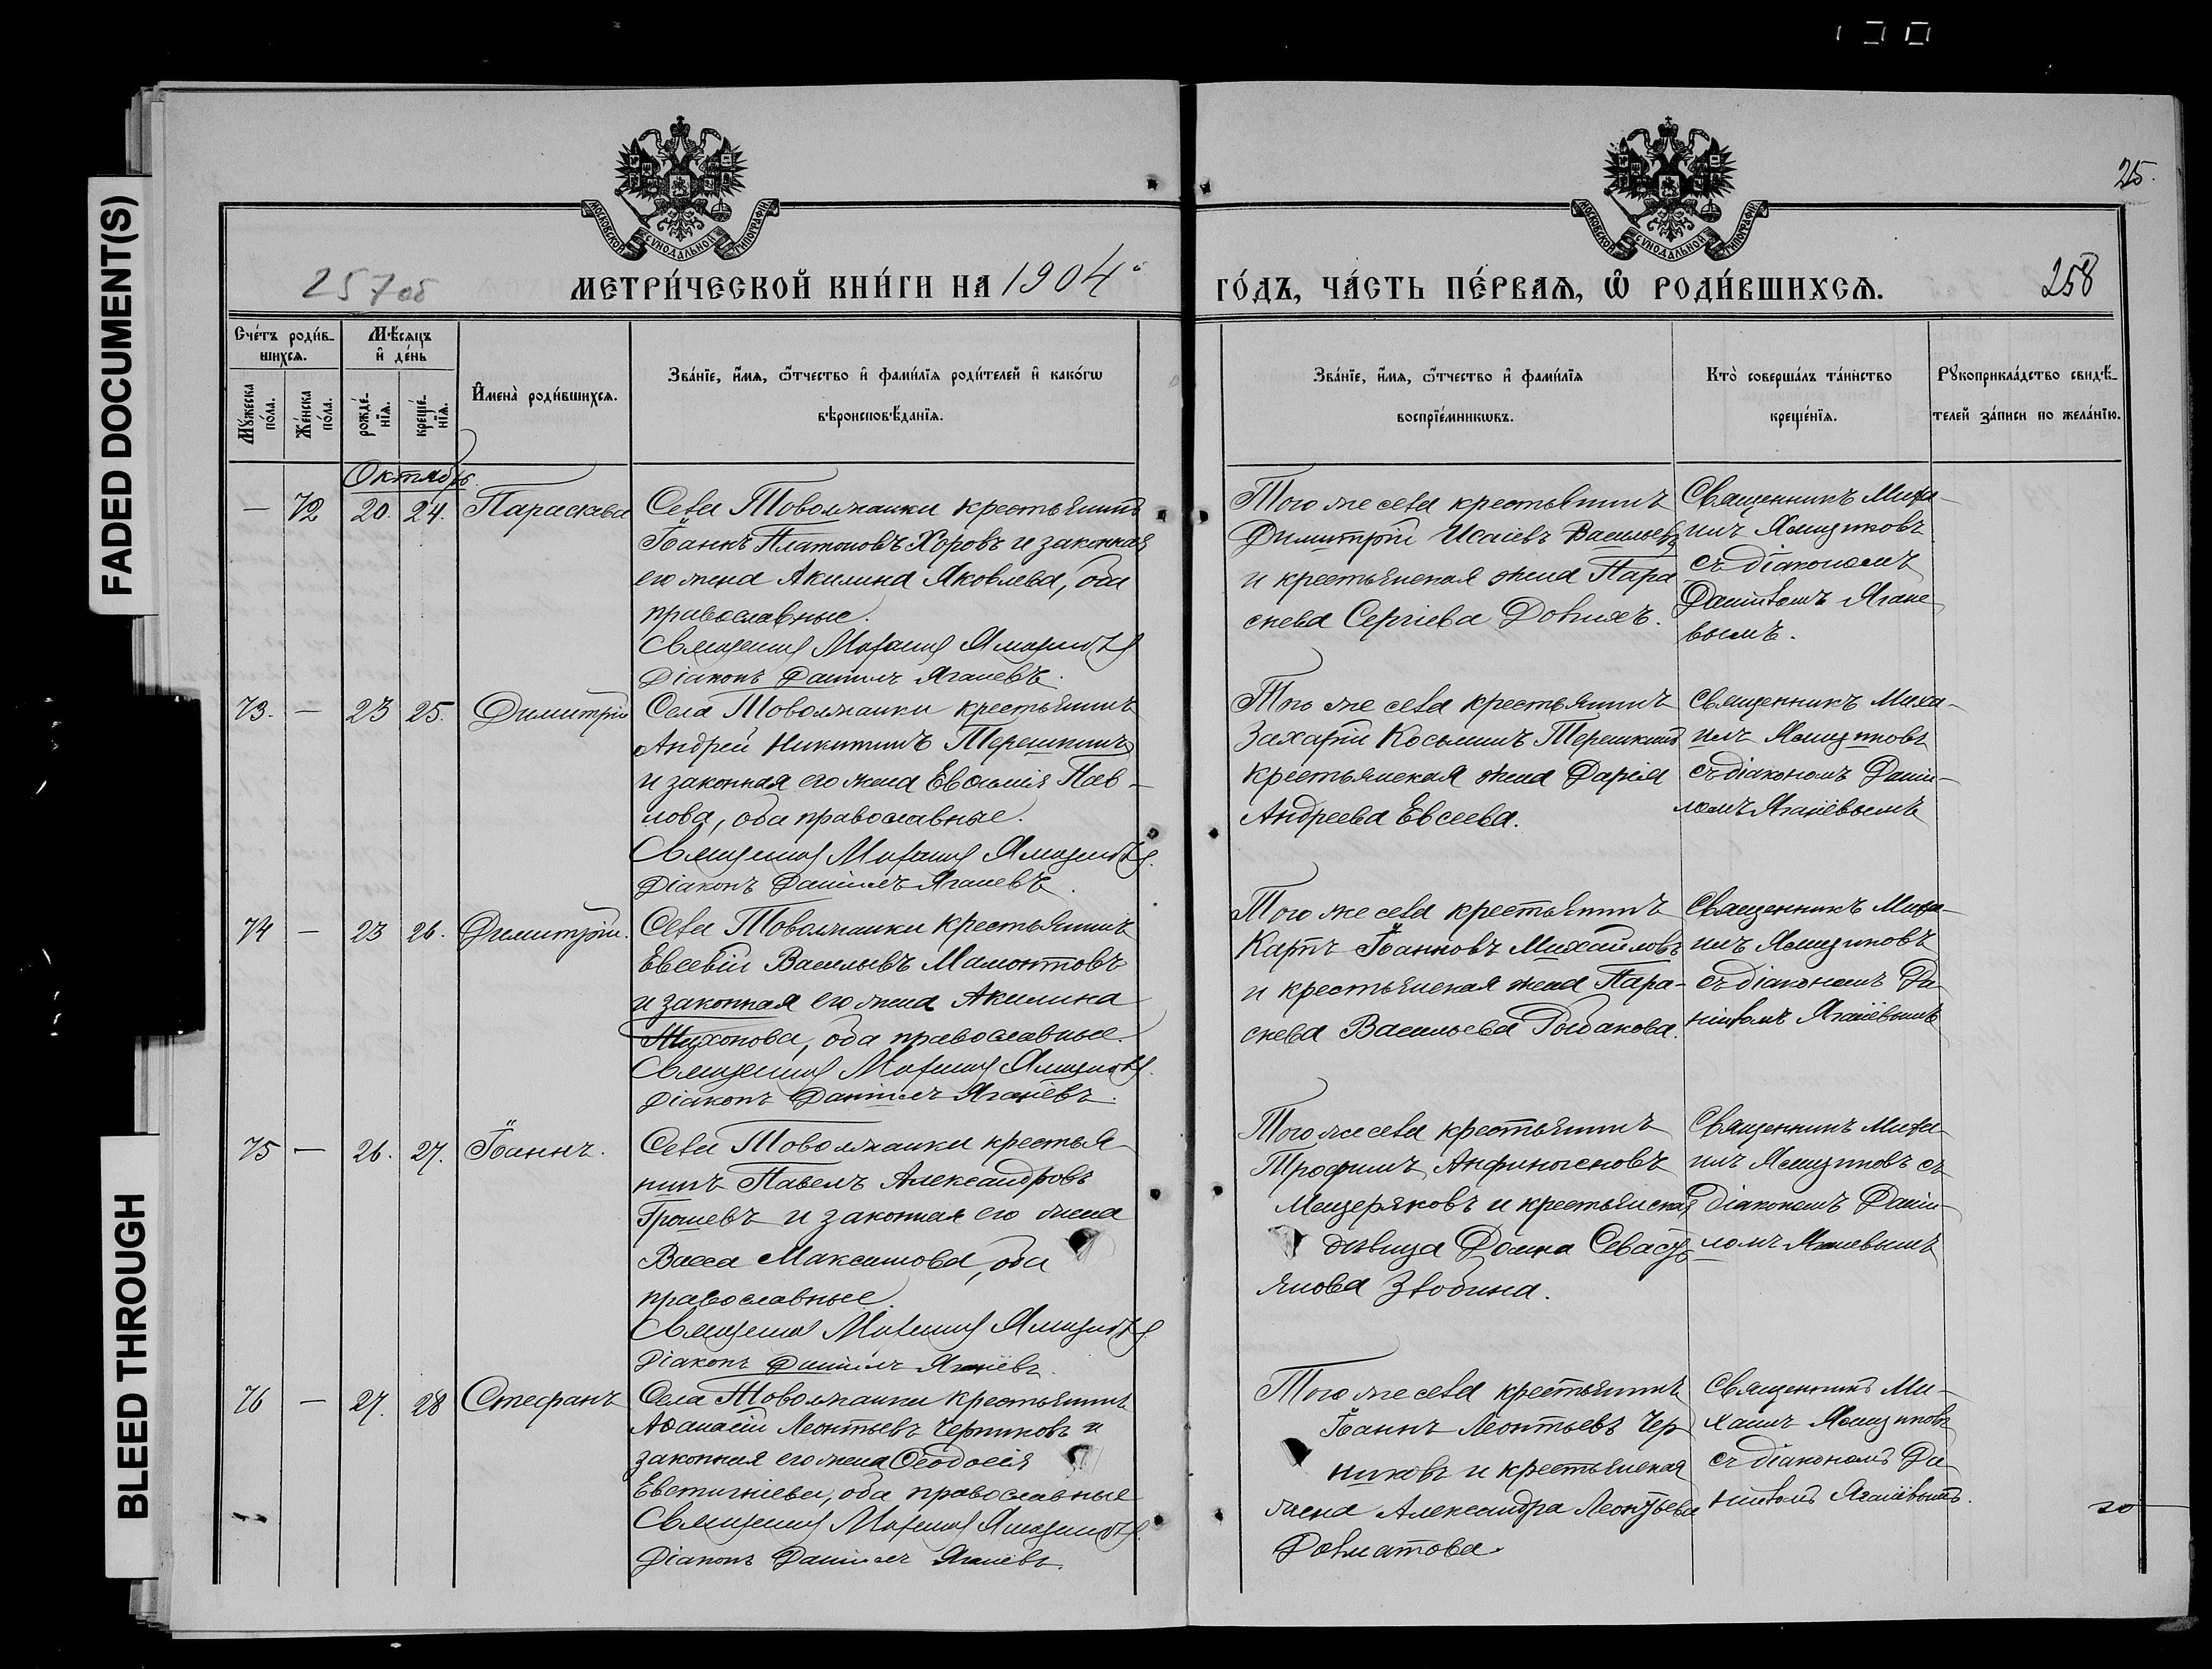 FADED DOCUMENT(S)
BLEED THROUGH
МОСКОВСКОЙ СУНОДАЛЬНОЙ ТИПОГРАФІИ
МОСКОВСКОЙ СУНОДАЛЬНОЙ ТИПОГРАФІИ
25.
257об
МЕТРИ́ЧЕСКОЙ КНИ́ГИ НА 1904
ГО́ДЪ, ЧА́СТЬ ПЕ́РВАЯ, Ѿ РОДИ́ВШИХСЯ.
258
Сче́тъ роди́в-
шихся.
Мꙋ́жеска по́ла.
Же́нска по́ла.
Мѣ́сяцъ
и҆ де́нь
рожде́-
нїя.
креще́-
нїя.
И҆мена̀ роди́вшихся.
Зва́нїе, и҆́мя, ѻ҆́тчество и҆ фами́лїя роди́телей и҆ како́гѡ
вѣроисповѣ́данїя.
Зва́нїе, и҆́мя, ѻ҆́тчество и҆ фами́лїя
воспрїе́мникѡвъ.
Кто̀ соверша́лъ та́инство
креще́нїя.
Рꙋкоприкла́дство свидѣ́-
телей за́писи по жела́нїю.
Октябрь.
— 72 20. 24. Параскева
Села Товолжанки крестьянинъ
Іоаннъ Платоновъ Хоровъ и законная
его жена Акилина Яковлева, оба
православные.
Священникъ Михаилъ
Діаконъ Даніилъ Яганевъ.
Того же села крестьянинъ
Димитрій Исаіевъ Васильевъ
и крестьянская жена Пара
скева Сергіева
Священникъ Миха-
илъ
съ діакономъ
Даніиломъ Ягане
вымъ.
73. — 23 25. Димитрій
Села Товолжанки крестьянинъ
Андрей Никитинъ Терешкинъ
и законная его жена Евѳимія Пав-
лова, оба православные.
Священникъ Михаилъ
Діаконъ Даніилъ Яганевъ.
Того же села крестьянинъ
Захарій Косьминъ Терешкинъ
крестьянская жена Дарія
Андреева Евсеева.
Священникъ Миха-
илъ
съ діакономъ Дании-
ломъ Яганевымъ
74 — 23 26. Димитрій.
Села Товолжанки крестьянинъ
Евсевій Васильевъ Мамонтовъ
и законная его жена Акилина
Тихонова, оба православные.
Священникъ Михаилъ
Діаконъ Даніилъ Яганевъ.
Того же села крестьянинъ
Карпъ Іоанновъ Михайловъ
и крестьянская жена Пара-
скева Васильева Рыбакова.
Священникъ Миха-
илъ
съ діакономъ Да-
ніиломъ Яганевымъ
75 — 26. 27. Іоаннъ.
Села Товолжанки крестья-
нинъ Павелъ Александровъ
Грошевъ и законная его жена
Васса Максимова, оба
православные.
Священникъ Михаилъ
Діаконъ Даніилъ Яганевъ.
Того же села крестьянинъ
Трофимъ Анфиногеновъ
Мещеряковъ и крестьянская
дѣвица Домна Севасть-
янова Злобина.
Священникъ Миха-
илъ съ
діакономъ Дании-
ломъ Яганевымъ
76 — 27. 28 Стефанъ
Села Товолжанки крестьянинъ
Аѳанасій Леонтьевъ Черниковъ и
законная его жена Ѳеодосія
Евстигніева, оба православные
Священникъ Михаилъ
Діаконъ Даніилъ Яганевъ.
Того же села крестьянинъ
Іоаннъ Леонтьевъ Чер
никовъ и крестьянская
жена Александра Леонтьева
Долматова.
Священникъ Ми-
хаилъ
съ діакономъ Да-
ніиломъ Яганевымъ.